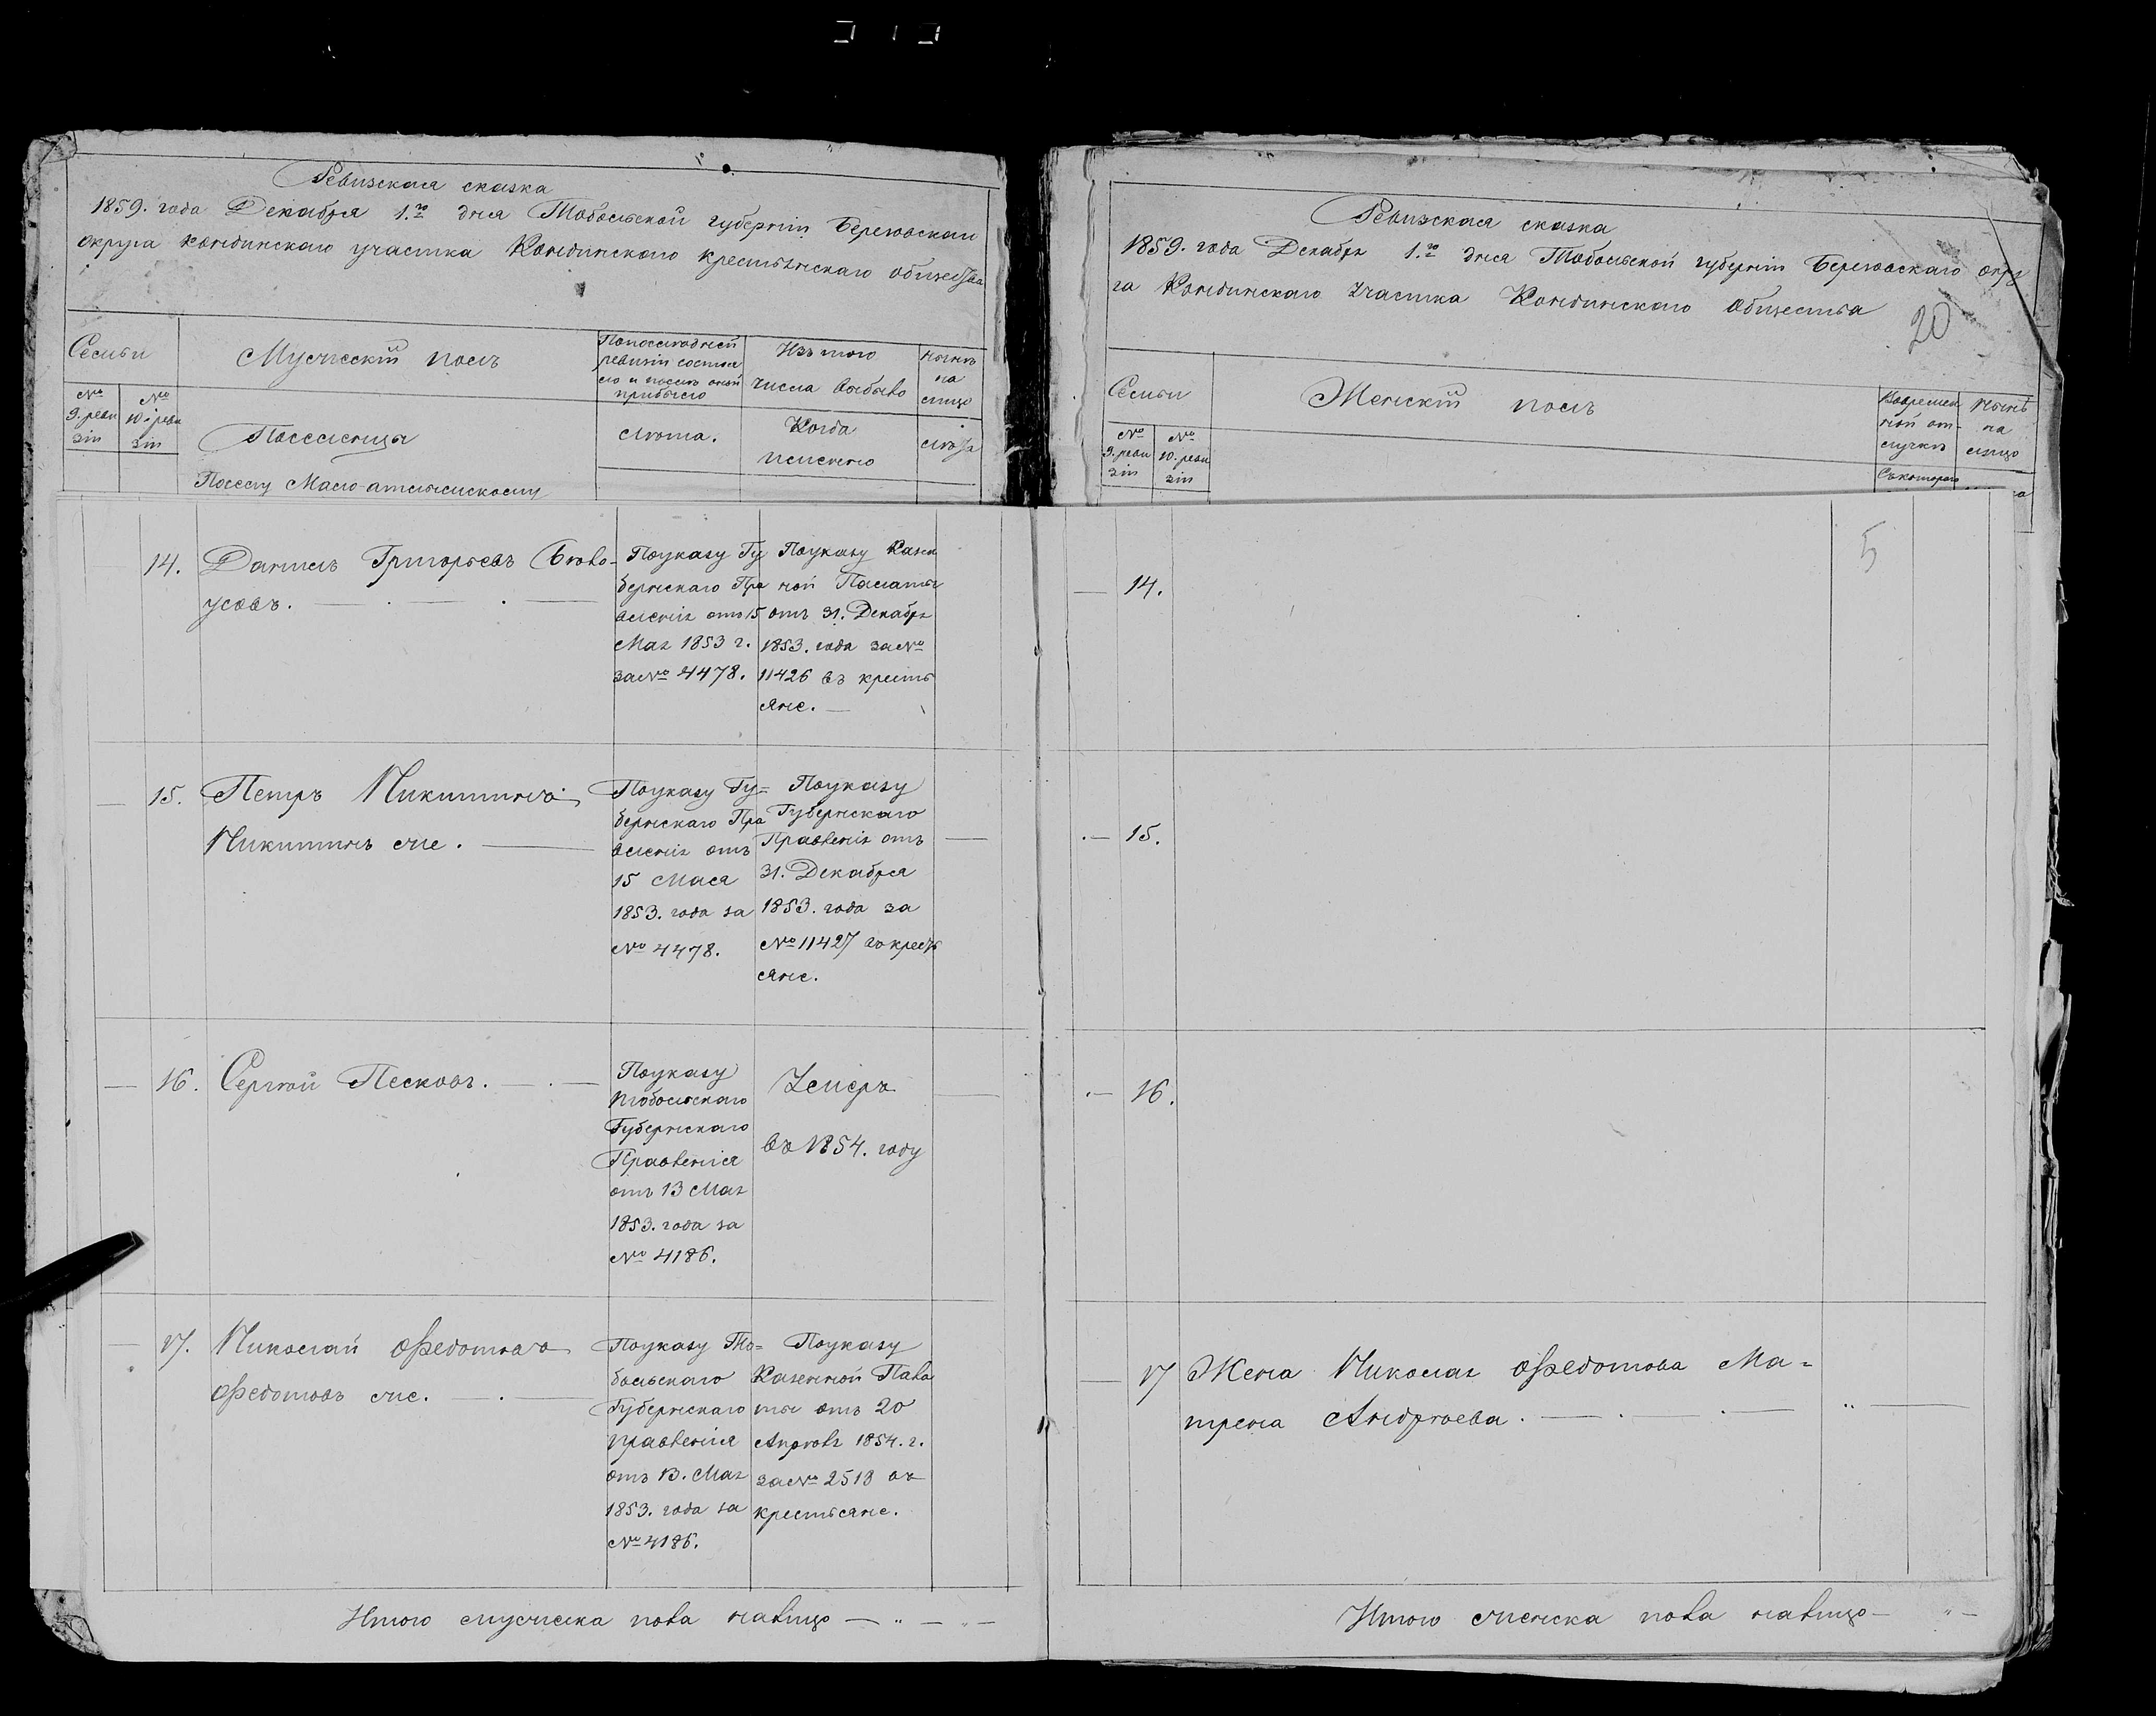 Ревизская сказка
1859. года Декабря 1.го дня Тобольской губернiи Березовскаго
округа Кондинскаго участка Кондинскаго крестьянскаго общества
Семьи
Мужескiй полъ
По последней
ревизiи состоя
ло и после оной
прибыло
Изъ того
числа выбыло
ныне
на
лицо
№
9. реви
зiи
№
10. реви
зiи
Поселенцы
лета.
Когда
именно
лета
Поселу Мало-атлымскому
14.
Данилъ Григорьевъ Бело-
усовъ.
По указу Гу
бернскаго Пра
вленiя отъ 15
Мая 1853 г.
за № 4478.
По указу Казен
ной Палаты
отъ 31. Декабря
1853. года за №
11426 въ кресть
яне.
15.
Петръ Никитинъ
Никитинъ же.
По указу Гу=
бернскаго Пра
вленiя отъ
15 Мая
1853. года за
№ 4478.
По указу
Губернскаго
Правленiя отъ
31. Декабря
1853. года за
№ 11427 въ кресть
яне.
16.
Сергей Песковъ.
По указу
Тобольскаго
Губернскаго
Правленiя
отъ 13 Мая
1853. года за
№ 4186.
Умеръ
въ 1854. году
17.
Николай Федотовъ
Федотовъ же.
По указу То=
больскаго
Губернскаго
правленiя
отъ 13. Мая
1853. года за
№ 4186.
По указу
Казенной Пала
ты отъ 20
Апреля 1854. г.
за № 2518 въ
крестьяне.
Итого мужеска пола налицо
Ревизская сказка
1859. года Декабря 1.го дня Тобольской губернiи Березовскаго окру
га Кондинскаго участка Кондинскаго общества
20
Семьи
Женскiй полъ
Во времен
ной от-
лучке
Ныне
на
лицо
№
9. реви
зiи
№
10. реви
зiи
Съ котораго
5
14.
15.
16.
17
Жена Николая Федотова Ма=
трена Андреева.
Итого женска пола налицо